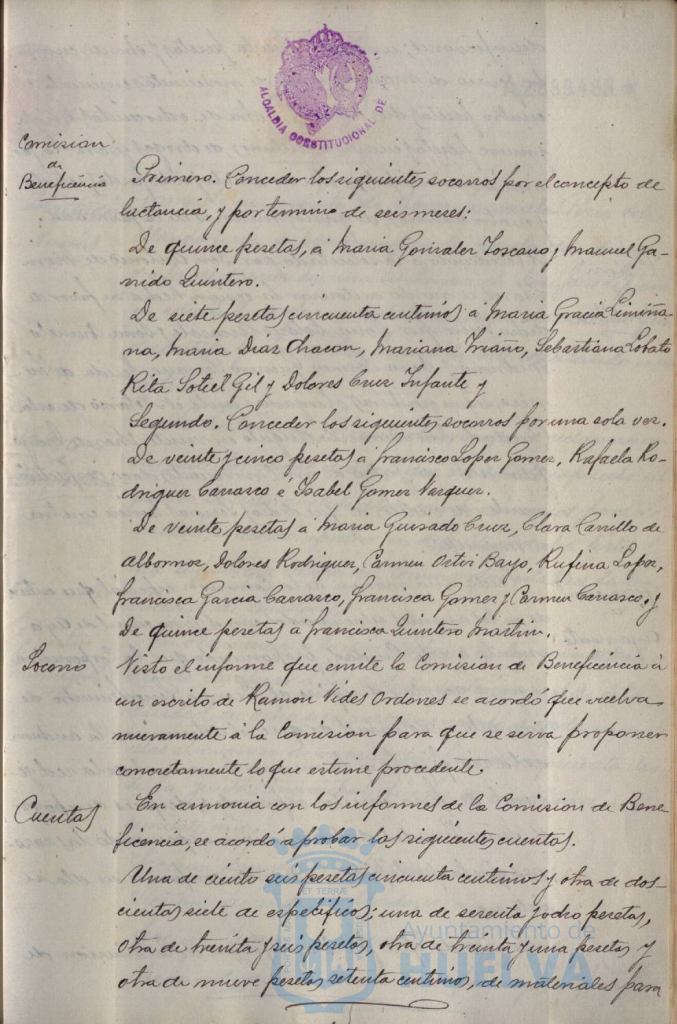 ALCALDIA CONSTITUCIONAL DE
Comision
de
Beneficencia
Primero. Conceder los siguientes socorros por el concepto de
lactancia, y por termino de seis meses:
De quince pesetas, á Maria Gonzalez Toscano y Manuel Ga-
rrido Quintero.
De siete pesetas cincuenta centimos á Maria Gracia Limiña-
na, Maria Diaz Chacon, Mariana Triaño, Sebastiana Lobato
Rita Sotiel Gil y Dolores Cruz Infante y
Segundo. Conceder los siguientes socorros por una sola vez.
De veinte y cinco pesetas á Francisco Lopez Gomez, Rafaela Ro-
driguez Carrasco é Isabel Gomez Vazquez.
De veinte pesetas á Maria Guisado Cruz, Clara Carrillo de
Albornoz, Dolores Rodriguez, Carmen Ortiz Bayo, Rufina Lopez,
Francisca Garcia Carrasco, Francisca Gomez y Carmen Carrasco, y
De quince pesetas á Francisca Quintero Martin.
Socorro
Visto el informe que emite la Comision de Beneficencia á
un escrito de Ramon Vides Ordones se acordó que vuelva
nuevamente á la Comision para que se sirva proponer
concretamente lo que estime procedente.
Cuentas
En armonia con los informes de la Comision de Bene-
ficencia, se acordó aprobar las siguientes cuentas.
Una de ciento seis pesetas cincuenta centimos y otra de dos-
cientas siete de especificos; una de sesenta y ocho pesetas,
otra de treinta y seis pesetas, otra de treinta y una pesetas y
otra de nueve pesetas setenta centimos, de materiales para
Ayuntamiento de
HUELVA